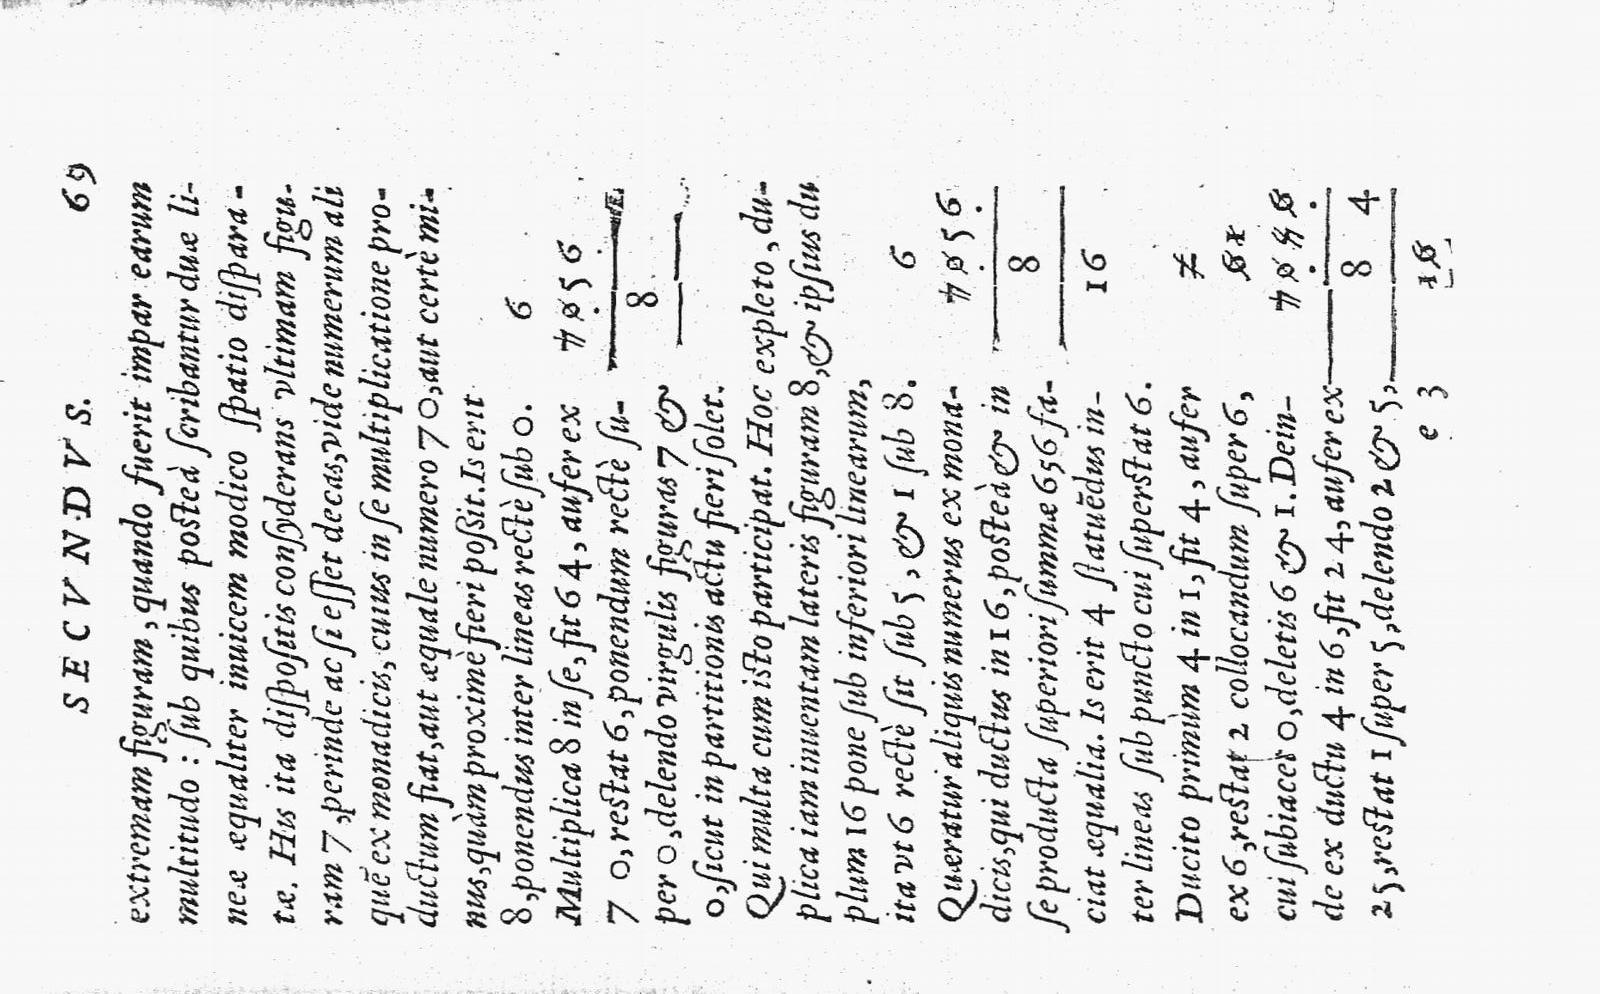 SECVNDVS. 69
extremam figuram, quando fuerit impar earum
multitudo : sub quibus posteà scribantur duæ li-
neæ æqualiter inuicem modico spatio dispara-
tæ. His ita dispositis consyderans vltimam figu-
ram 7, perinde ac si esset decas, vide numerum ali
quē ex monadicis, cuius in se multiplicatione pro-
ductum fiat, aut æquale numero 70, aut certè mi-
nus, quàm proximè fieri possit. Is erit
8, ponendus inter lineas rectè sub 0. 6
Multiplica 8 in se, fit 64, aufer ex 7056
70, restat 6, ponendum rectè su-
per 0, delendo virgulis figuras 7 & 8
0, sicut in partitionis actu fieri solet.
Qui multa cum isto participat. Hoc expleto, du-
plica iam inuentam lateris figuram 8, & ipsius du
plum 16 pone sub inferiori linearum,
ita vt 6 rectè sit sub 5, & 1 sub 8. 6
Quæratur aliquis numerus ex mona- 7056
dicis, qui ductus in 16, posteà & in 8
se producta superiori summæ 656 fa-
ciat æqualia. Is erit 4 statuēdus in- 16
ter lineas sub puncto cui superstat 6.
Ducito primùm 4 in 1, fit 4, aufer 2
ex 6, restat 2 collocandum super 6, 61
cui subiacet 0, deletis 6 & 1. Dein- 7056
de ex ductu 4 in 6, fit 24, aufer ex 8 4
25, restat 1 super 5, delendo 2 & 5,
e 3 16